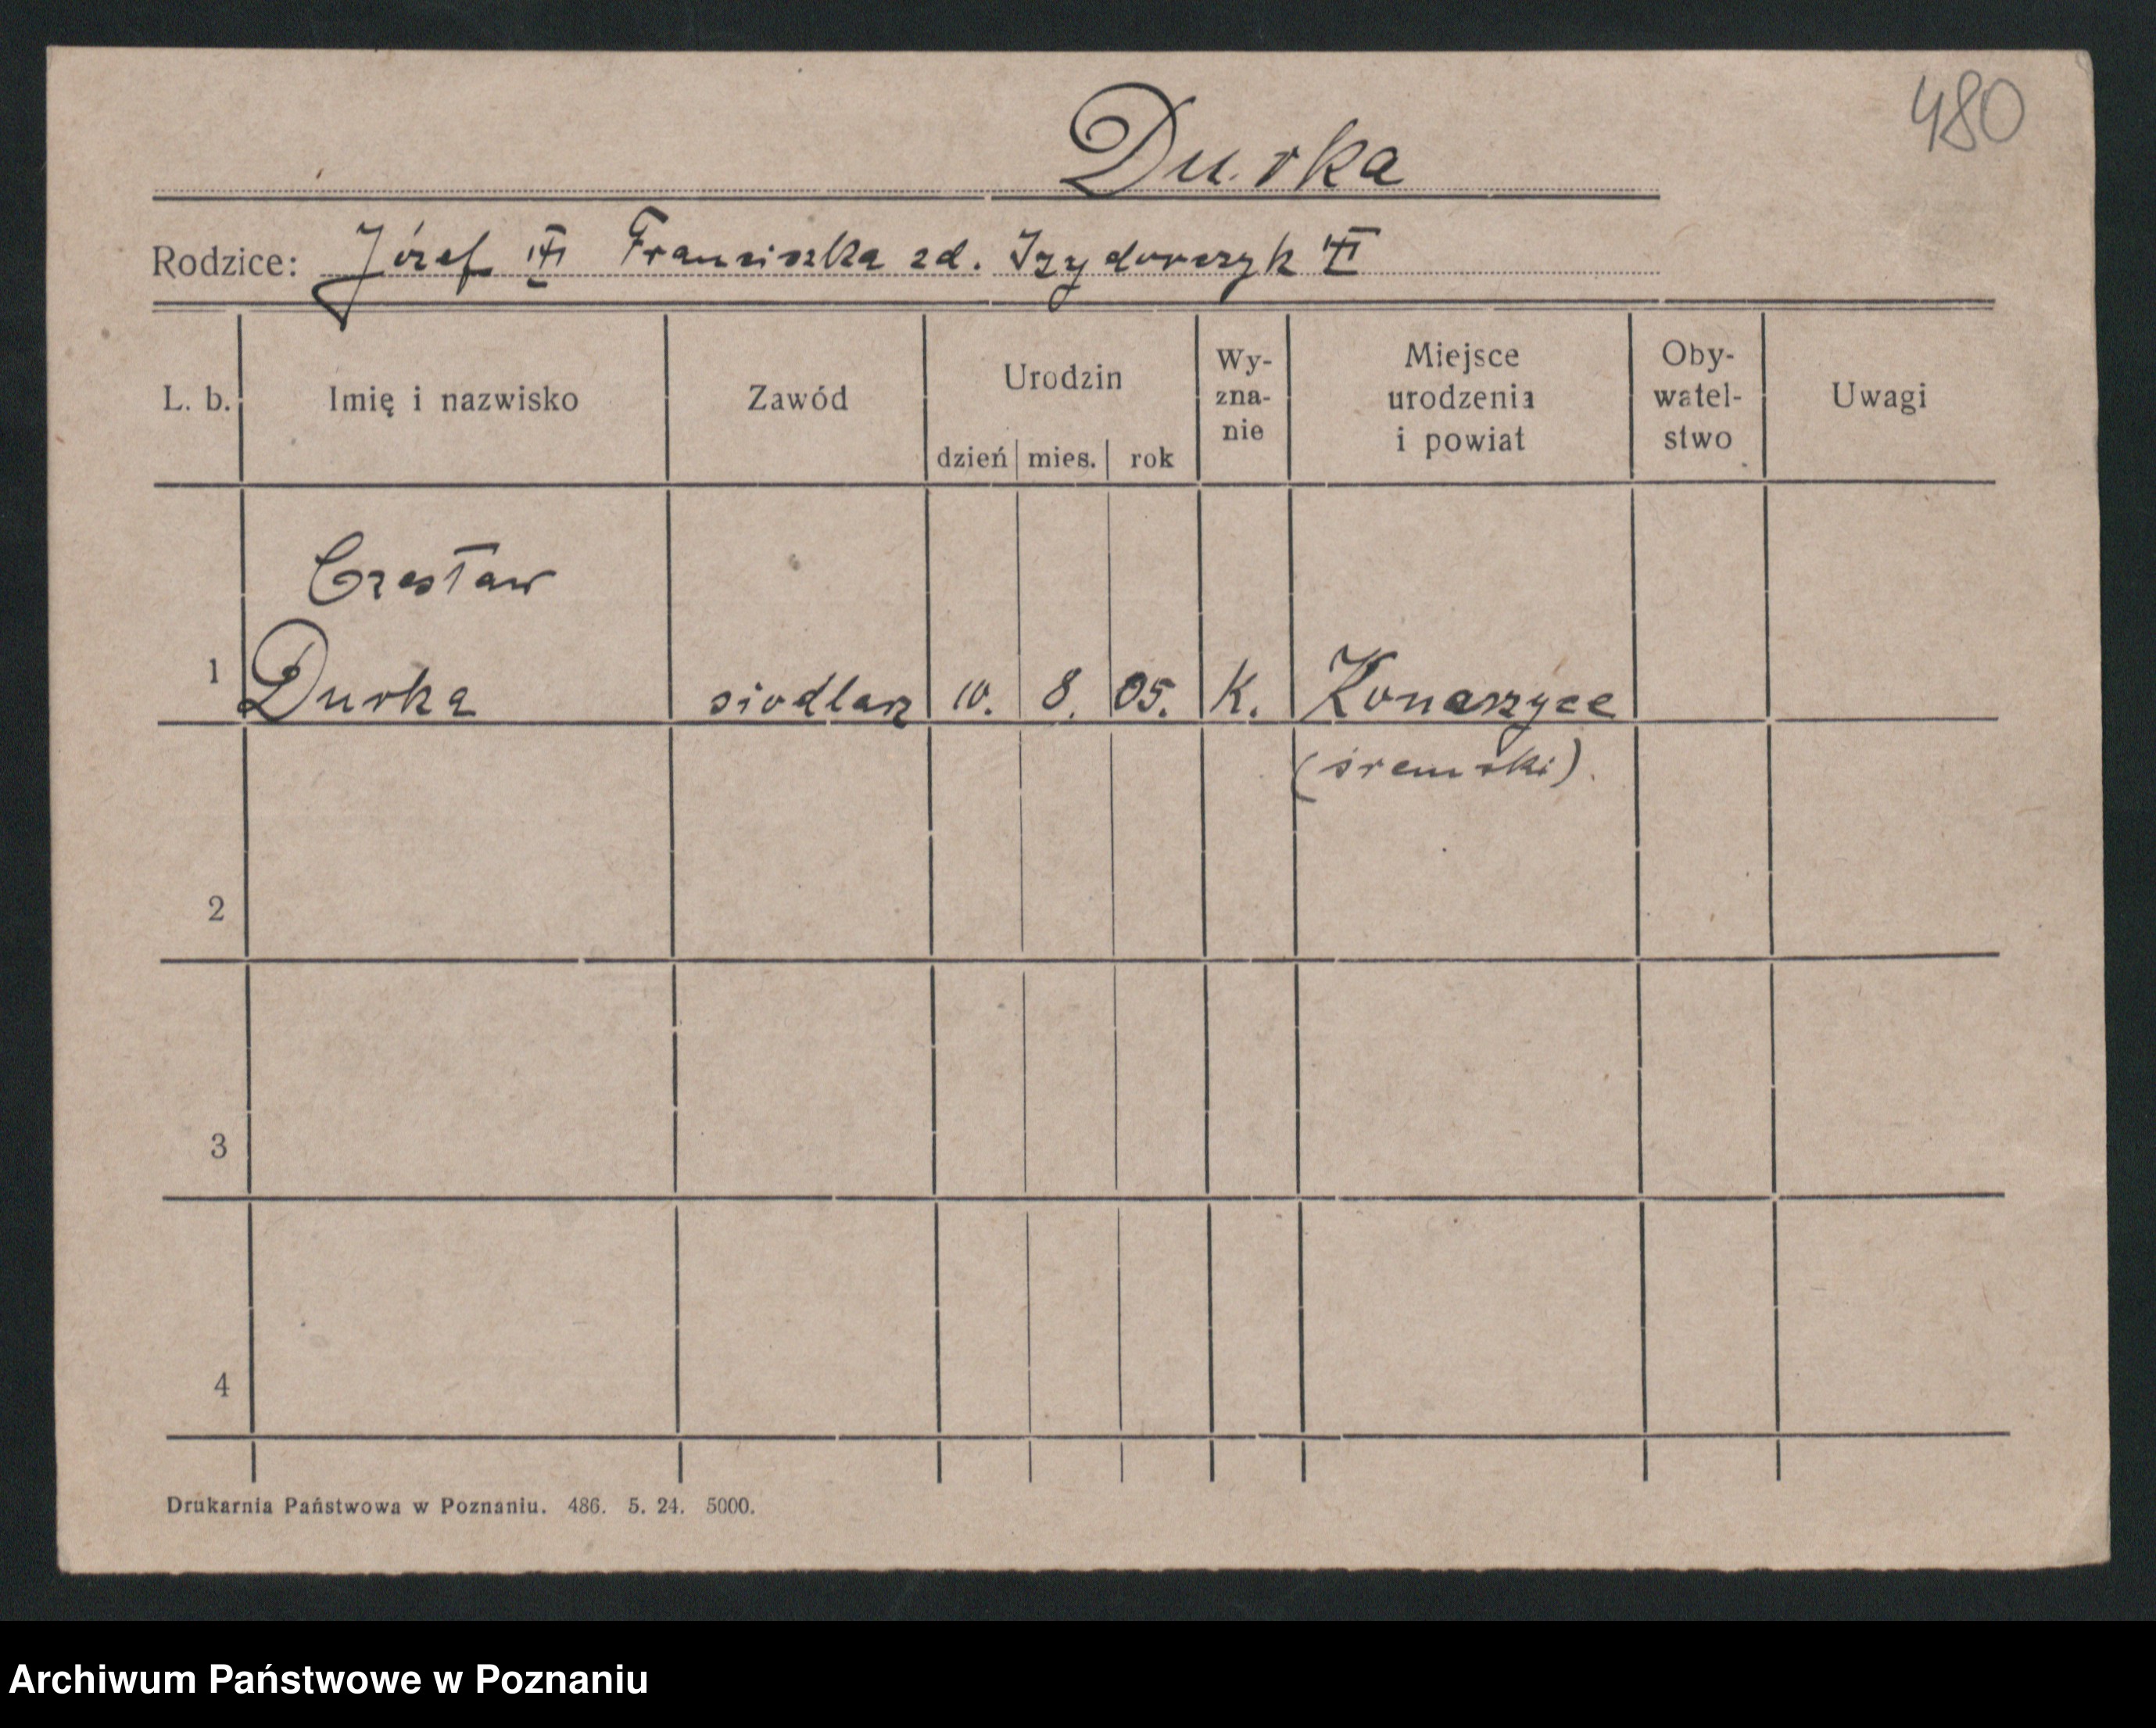 480
Durka
Rodzice: Józef Franciszka zd. Izydorczyk
L. b. Imię i nazwisko Zawód Urodzin dzień mies. rok Wy-zna-nie Miejsce urodzenia i powiat Oby-watel-stwo Uwagi
Czesław
1 Durka siodlarz 10. 8. 05. K. Konarzyce
(śremski).
2
3
4
Drukarnia Państwowa w Poznaniu. 486. 5. 24. 5000.
Archiwum Państwowe w Poznaniu